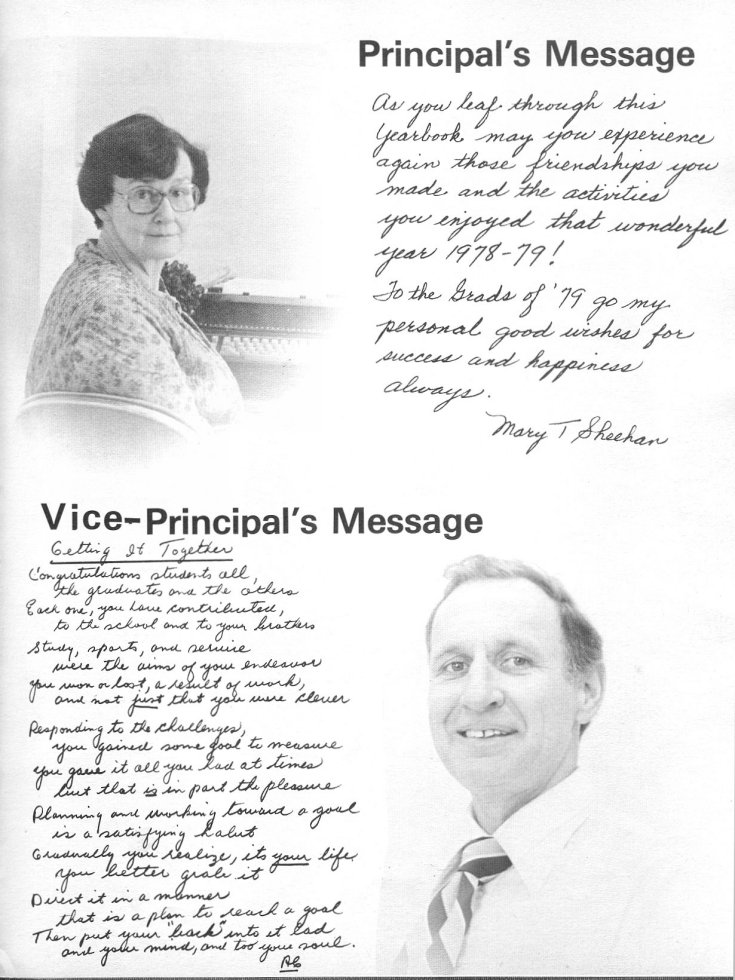 Principal's Message
As you leaf through this
Yearbook may you experience
again those friendships you
made and the activities
you enjoyed that wonderful
year 1978-79!
To the Grads of '79 go my
personal good wishes for
success and happiness
always.
Mary T Sheehan
Vice-Principal's Message
Getting It Together
Congratulations students all,
the graduates and the others
Each one, you have contributed,
to the school and to your brothers
Study, sports, and service
were the aims of your endeavor
You won or lost, a result of work,
and not just that you were clever
Responding to the challenges,
you gained some goal to measure
You gave it all you had at times
but that is in part the pleasure
Planning and working toward a goal
is a satisfying habit
Gradually you realize, its your life
You better grab it
Direct it in a manner
that is a plan to reach a goal
Then put your "back" into it lad
and your mind, and too your soul.